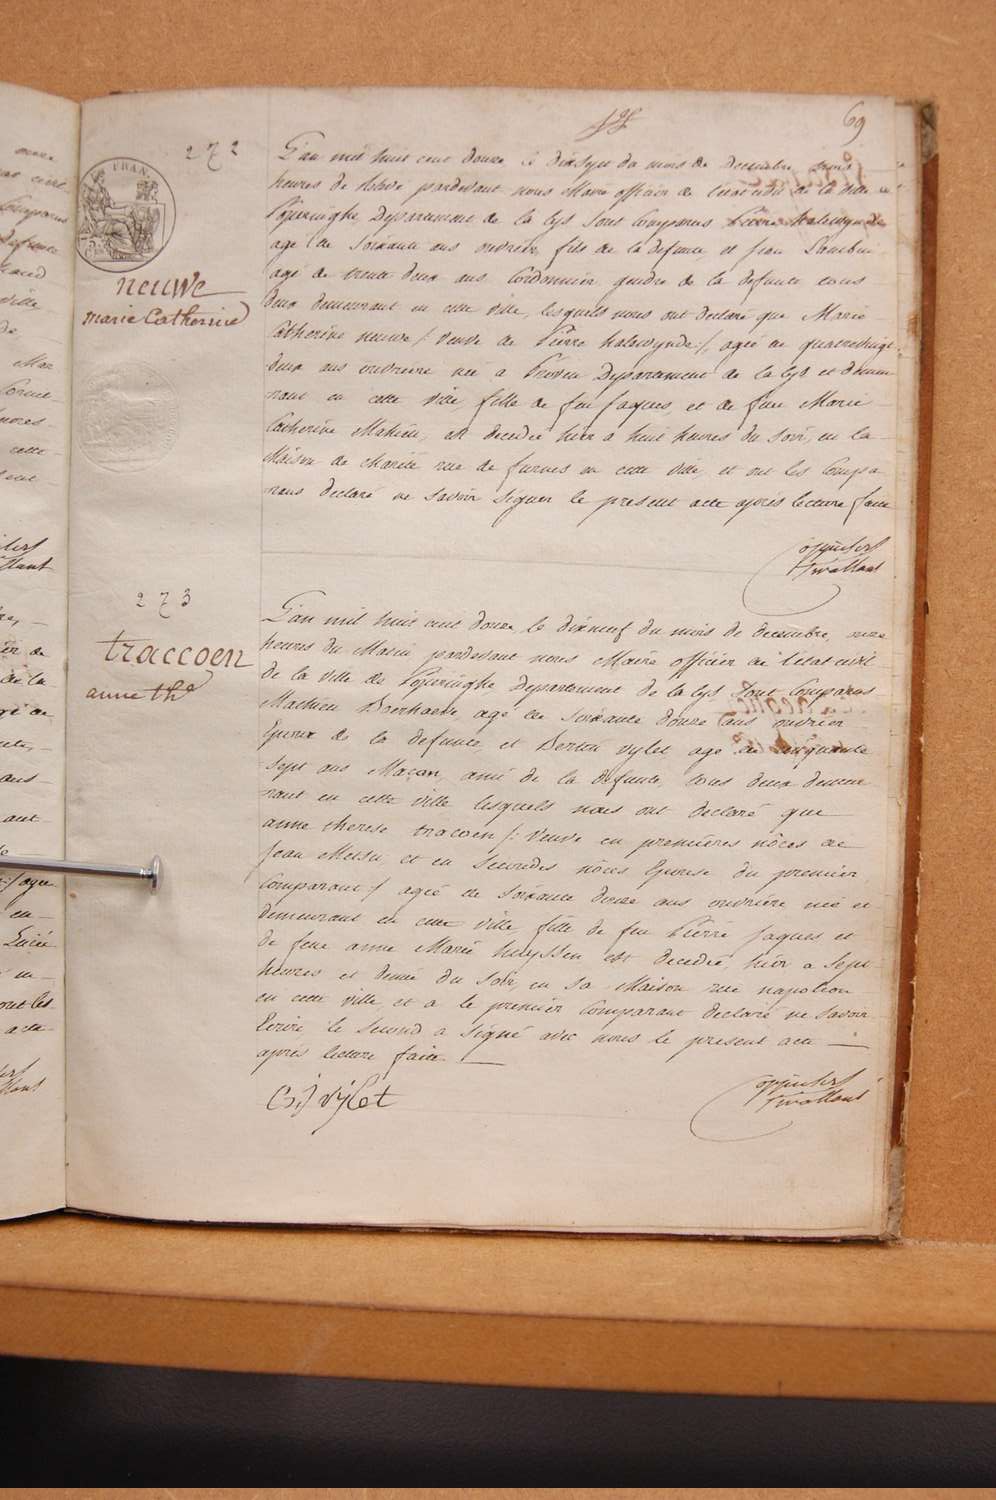 69
272
neuwe
marie Catherine
L'an mil huit cent douze le dixsept du mois de Decembre trois
heures de relevé pardevant nous Maire officier de l'etat civil de la ville
Poperinghe Departement de la lys sont Comparus Pierre halewynde
agé de soixante ans ouvrier, fils de la defunte et Jean
agé de trente deux ans Cordonnier gendre de la defunte tous
deux demeurant en cette ville, lesquels nous ont declaré que Marie
Catherine neuwe /: veuve de Pierre halewynde :/, agée de quatrevingt
deux ans ouvriere née a Proven Departement de la lys et demeu
rant en cette ville fille de feu Jaques, et de feue Marie
Catherine Mahieu, est decedée hier a huit heures du soir, en la
Maison de charité rue de furnes en cette ville, et ont les Compa
rans declaré ne savoir signer le present acte après lecture faite
273
traccoen
anne the
L'an mil huit cent douze, le dixneuf du mois de decembre, onze
heures du Matin pardevant nous Maire officier de l'etat civil
de la ville de Poperinghe Departement de la lys sont Comparus
Mathieu Boerhaeve, agé de soixante douze ans ouvrier
Epoux de la defunte et Bertin vylet agé de cinquante
sept ans Maçon, ami de la defunte, tous deux demeu
rant en cette ville lesquels nous ont declaré que
anne therese tracoen /: veuve en premières nôces de
Jean Mersu, et en secondes nôces Epouse du premier
Comparant :/ agée de soixante douze ans ouvrière née et
demeurant en cette ville, fille de feu Pierre Jaques et
de feue anne Marie huyssen est decedée hier a sept
heures et demie du soir, en sa Maison rue napoleon
en cette ville, et a le premier Comparant declaré ne savoir
Ecrire, le second a signé avec nous le present acte
après lecture faite
B.J vylet